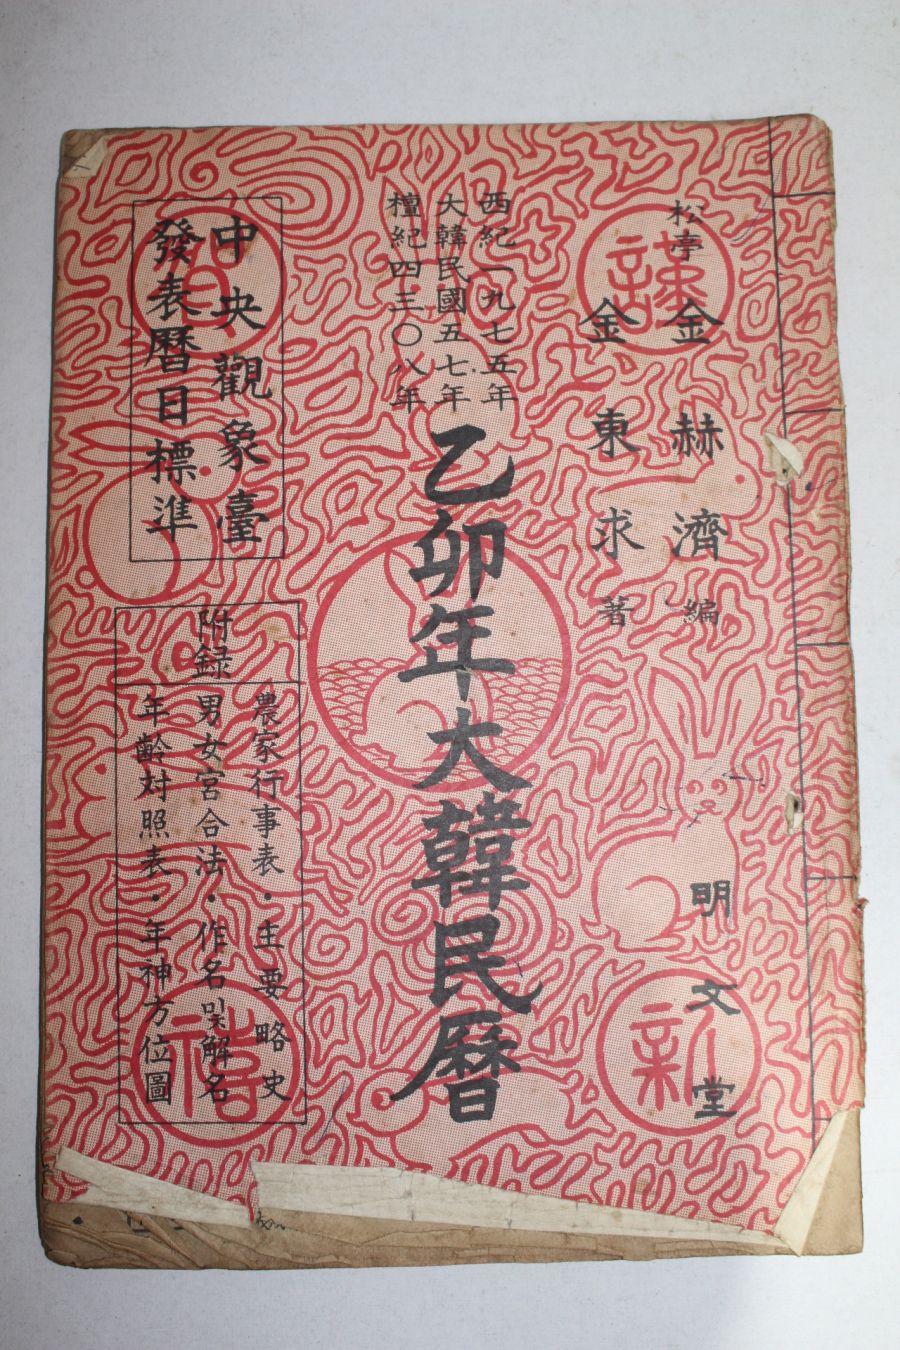 松亭 金赫濟 編
金東求 著
明文堂
西紀一九七五年
大韓民國五七年
檀紀四三〇八年
乙卯年大韓民曆
中央觀象臺
發表曆日標準
附録
農家行事表・主要略史
男女宮合法・作名및解名
年齡対照表・年神方位圖
謹
新
禧